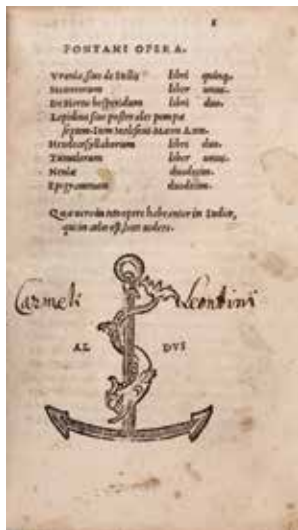 PONTANI OPERA.
Vrania, siue de Stellis libri quinq;
Meteororum liber unus.
De Hortis hesperidum libri duo.
Lepidina siue postorales pompæ
septem. Item Meliseus Mæon Acon.
Hendecasyllaborum libri duo.
Tumulorum liber unus.
Neniæ duodecim.
Epigrammata duodecim.
Quæ uero in toto opere habeantur in Indice,
qui in calce est, licet uidere.
Carmeli Leontini
AL DVS